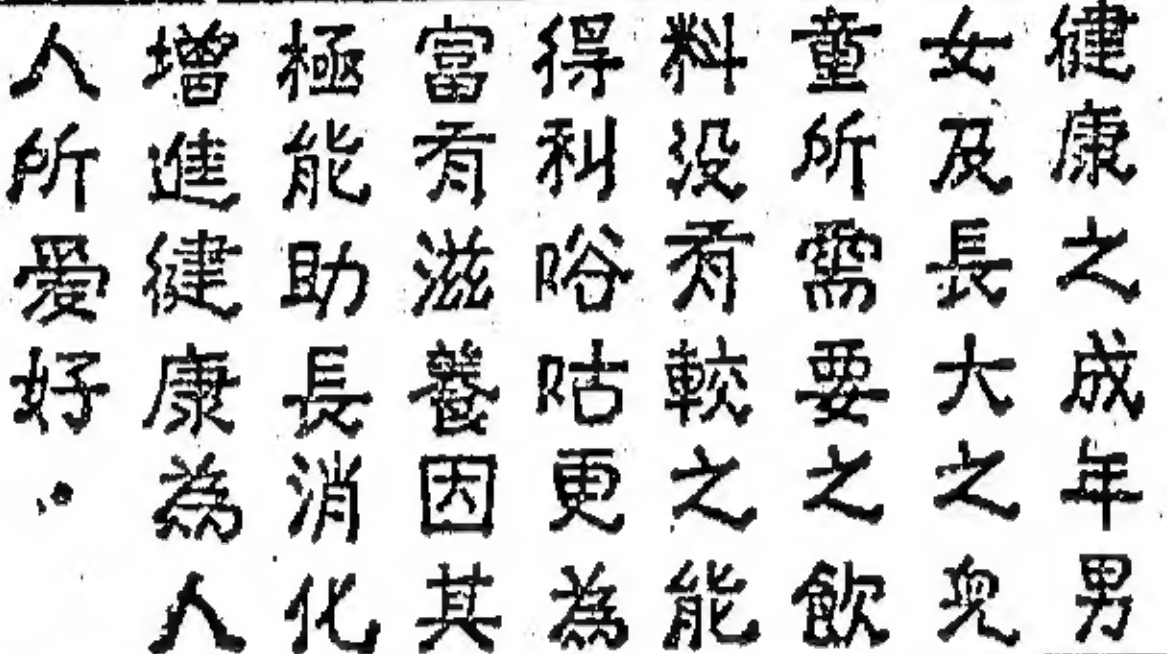 健康之成年男
女及長大之兒
童所需要之飲
料没有較之能
得利嗗咕更為
富有滋養因其
極能助長消化
增進健康為人
人所愛好。